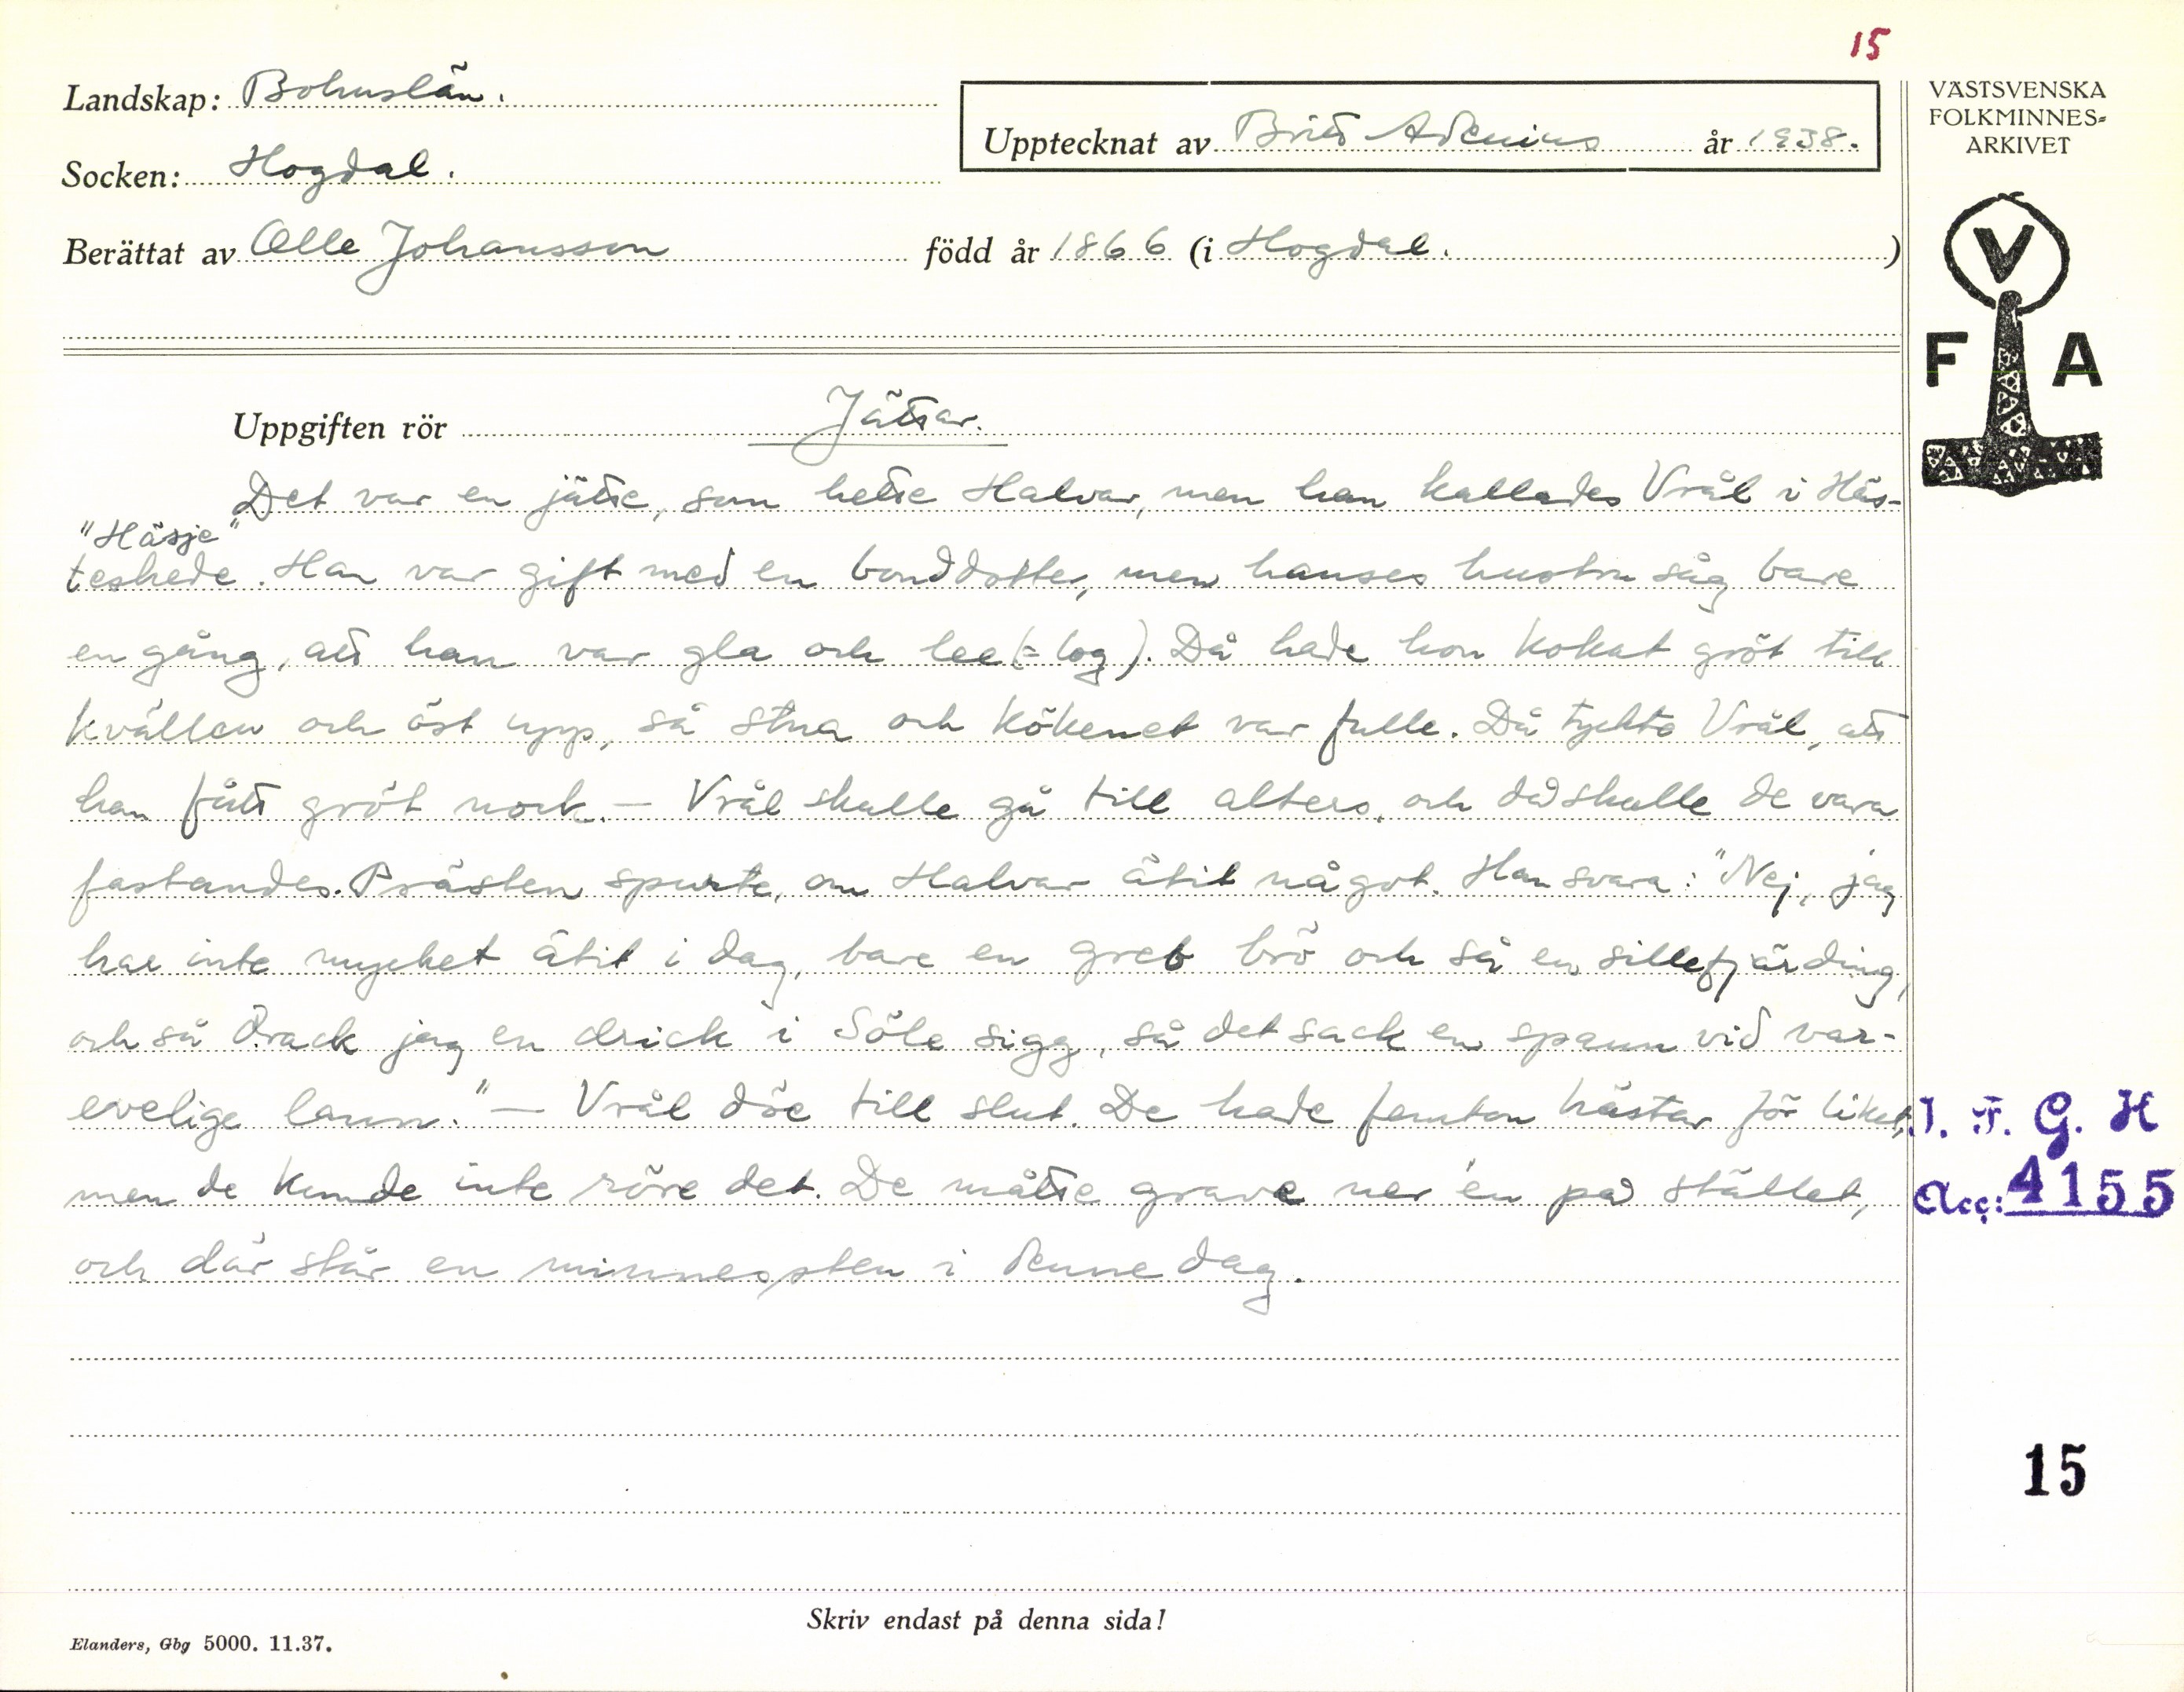 15
Landskap: Bohuslän.
Upptecknat av Britt Adenius år 1938.
Socken: Hogdal.
Berättat av Olle Johansson född år 1866 (i Hogdal.)
VÄSTSVENSKA
FOLKMINNES=
ARKIVET
V
F A
Uppgiften rör Jättar.
Det var en jätte, som hette Halvar, men han kallades Vrål i Häs-
"Häsje"
teskede. Han var gift med en bonddotter, men hanses hustru såg bare
en gång, att han var gla och lee (= log). Då hade hon kokat gröt till
kvällen och öst upp, så stua och kökenet var fulle. Då tyckte Vrål, att
han fått gröt nock. — Vrål skulle gå till alters, och då skulle de vara
fastandes. Prästen spurte, om Halvar ätit något. Han svara: "Nej, jag
har inte mycket ätit i dag, bare en greb brö och så en sillefjärding,
och så drack jag en drick i Söle sigg, så det sack en spann vid var-
evelige lann." — Vrål döe till slut. De hade femton hästar för liket,
men de kunde inte röre det. De måtte grave ner én på stället,
och där står en minnessten i denne dag.
I. F. G. H
Acc: 4155
15
Skriv endast på denna sida!
Elanders, Gbg 5000. 11.37.